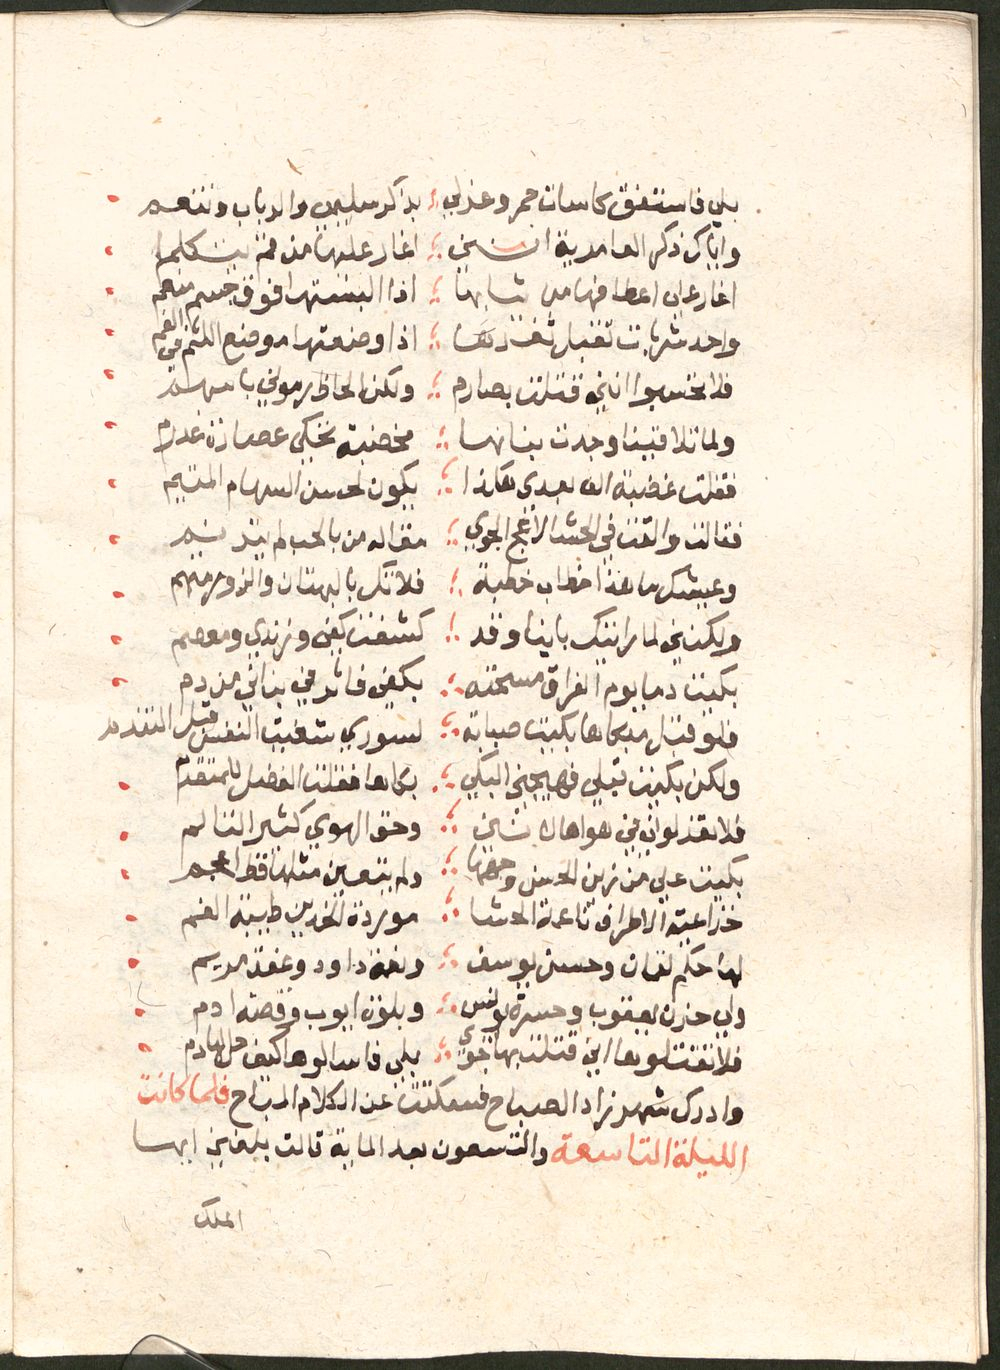 بلي فاستفق كاسات خمر وغنلي بذكر سليمي والرباب وتنعم
واياك ذكر العامرية انني اغار عليها من فم يتكلما
اغار علي اعطافها من ثيابها اذا البستها فوق جسم منعم
واحد شربات تقبل ثغرها اذا وضعتها موضع اللثم في الفم
فلا تحسبوا اني قتلت بصارم ولكن الحاظ رموني باسهم
ولما تلاقينا وجدت بنانها مخضبة تحكي عصارة عندم
فقلت خضبة الف بعدي هكذا يكون لحسن السهام المتيم
فقالت والقت في الحشا لاعج الجوي مقاله من بالحب لم يتبرم
وعيشك ما هذا خطاب خطبة فلا تك بالبهتان والزور متهم
ولكنني لما رايتك باينا وقد كشفت كفي وزندي ومعصم
بكيت دما يوم الفراق مسحته بكفي فاثر في بناني من دم
فلو قبل مبكاها بكيت صبابة لسوري شفيت النفس قبل التندم
ولكن بكيت قبلي فهيجني البكي بكاها فقلت الفضل للمتقدم
فلا تعذلواني في هواها لانني وحق الهوي كثير التالم
بكيت علي من زين الحسن وجهها ولم يتعين مثلها قط اعجم
خزاعية الاطراف ناعمة الحشا موردة الخدين طيبة الفم
لها حكم لقمان وحسن يوسف ونغمة داود وعفة مريم
ولي حزن يعقوب وحسرة يونس وبلوة ايوب وقصة ادم
فلا تقتلوها اني قتلت بها جوي بلي فاسالوها كيف حل لها دم
وادرك شهرزاد الصباح فسكتت عن الكلام المباح فلما كانت
الليلة التاسعة والتسعون بعد الماية قالت بلغني ايها
الملك